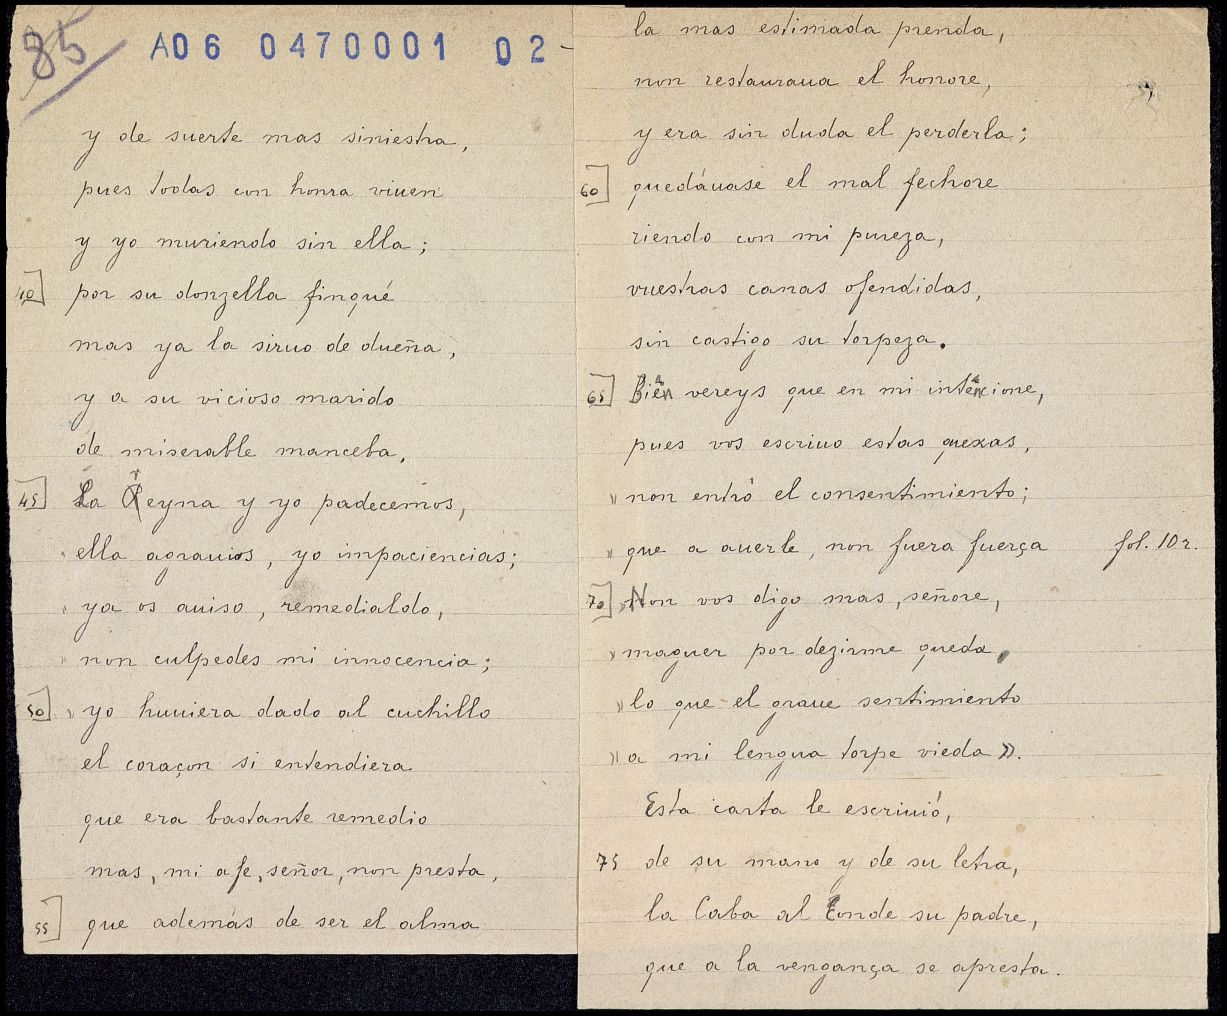 85
A06 0470001 02-
y de suerte mas siniestra,
pues todas con honra viuen
y yo muriendo sin ella;
40 por su donzella finqué
mas ya la siruo de dueña,
y a su vicioso marido
de miserable manceba,
45 La Reyna y yo padecemos,
ella agrauios, yo impaciencias;
ya os auiso, remedialdo,
non culpedes mi innocencia;
50 » yo huuiera dado al cuchillo
el coraçon si entendiera
que era bastante remedio
mas, mi afe, señor, non presta,
55 que además de ser el alma
la mas estimada prenda,
non restauraua el honore,
y era sin duda el perderla;
60 quedáuase el mal fechore
riendo con mi pureza,
vuestras canas ofendidas,
sin castigo su torpeza.
65 Bien vereys que en mi intencione,
pues vos escriuo estas quexas,
» non entró el consentimiento;
» que a auerle, non fuera fuerça fol. 10 r.
70 » Non vos digo mas, señore,
» maguer por dezirme queda,
» lo que el graue sentimiento
» a mi lengua torpe vieda ».
Esta carta le escriuió,
75 de su mano y de su letra,
la Caba al Conde su padre,
que a la vengança se apresta.